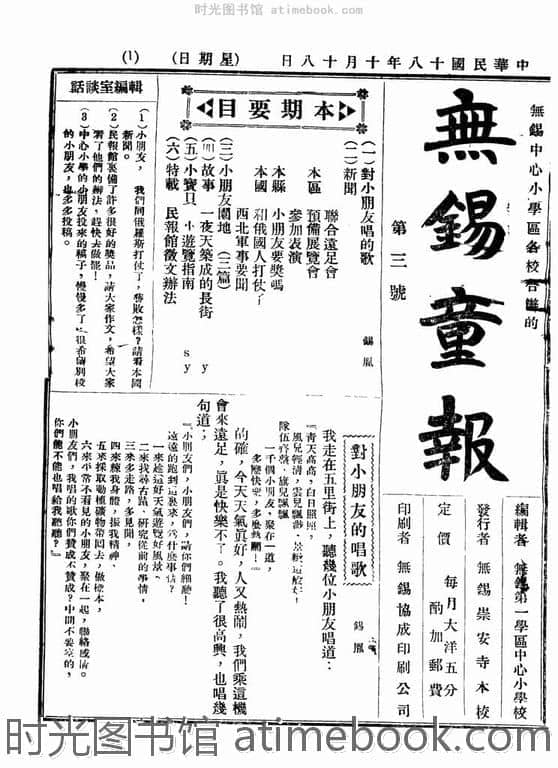 时光图书馆 atimebook.com
中華民國十八年十月十八日 (星期日) (1)
無錫中心小學區各校合辦的
無錫童報
第三號
編輯者 無錫第一學區中心小學校
發行者 無錫崇安寺本校
定價 每月大洋五分
酌加郵費
印刷者 無錫協成印刷公司
本期要目
(一)對小朋友唱的歌 錫胤
(二)新聞
本區 聯合遠足會
預備展覽會
參加表演
本縣 小朋友要獎嗎
本國 和俄國人打仗了
西北軍事要聞
(三)小朋友園地 (二篇)
(四)故事 一夜天築成的長街 y
(五)小寶貝 小遊覽指南 s y
(六)特載 民報館徵文辦法
輯編室談話
(1)小朋友, 我們同俄羅斯打仗了,勝敗怎樣?請看本國
新聞。
(2)民報館裏備了許多很好的獎品,請大家作文,希望大家
看了他們的辦法,趕快去做罷!
(3)中心小學的小朋友投來的稿子,慢慢多了,很希望別校
的小朋友,也多多投稿。
對小朋友的唱歌
錫胤
我走在五里街上,聽幾位小朋友唱道:
『青天高高,白日照照,
風兒輕清,雲兒飄渺,景緻這般好!
隊伍齊整,旗兒飄飄,
一千個小朋友,聚在一道,
多麼快樂,多麼熱鬧!』
的確,今天天氣真好,人又熱鬧,我們乘這機
會來遠足,眞是快樂不了。我聽了很高興,也唱幾
句道:
『小朋友們,小朋友們,請你們細聽!
遠遠的跑到這裏來,爲什麼事情?
一來趁這好天氣遊覽好風景、
二來找尋古蹟、研究從前的事情,
三來多走路,多見聞,
四來練我身體,振我精神、
五來採取動植礦物帶回去,做標本,
六來平常不看見的小朋友,聚在一起,聯絡感情。
小朋友們,我唱的歌你們贊成不贊成?中間不妥的,
你們能不能也唱給我聽聽?』
时光图书馆 atimebook.com